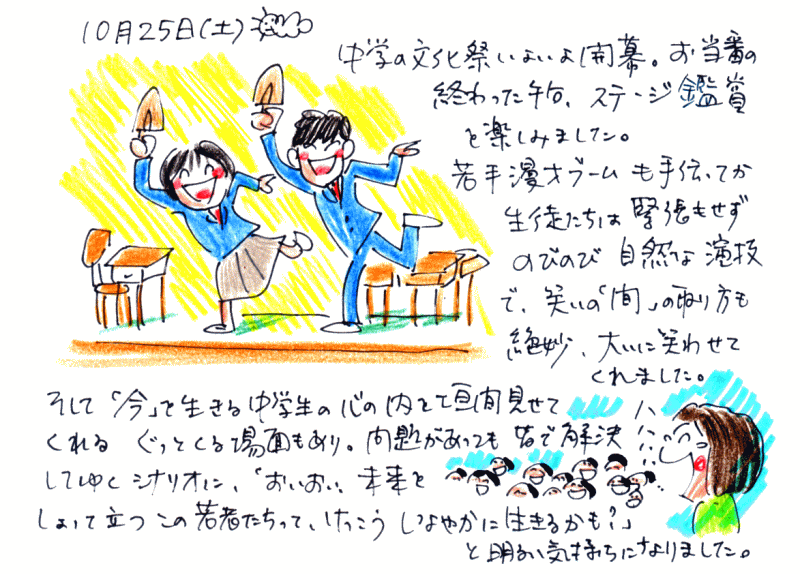 10月25日(土)
中学の文化祭いよいよ開幕。お当番の
終わった午后、ステージ鑑賞
を楽しみました。
若手漫才ブームも手伝ってか
生徒たちは緊張もせず
のびのび自然な演技
で、笑いの「間」の取り方も
絶妙、大いに笑わせて
くれました。
そして「今」を生きる中学生の心の内を垣間見せて
くれる ぐっとくる場面もあり。問題があっても皆で解決
してゆくシナリオに、「おいおい、未来を
しょって立つこの若者たちって、けっこうしなやかに生きるかも?」
と明るい気持ちになりました。